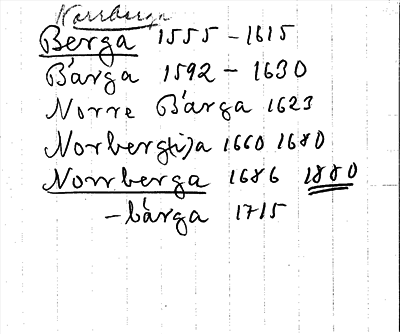 Norrberga
Berga 1555 - 1615
Bärga 1592 - 1630
Norre Bärga 1623
Norberg(i)a 1660 1680
Norrberga 1686 1880
- bärga 1715